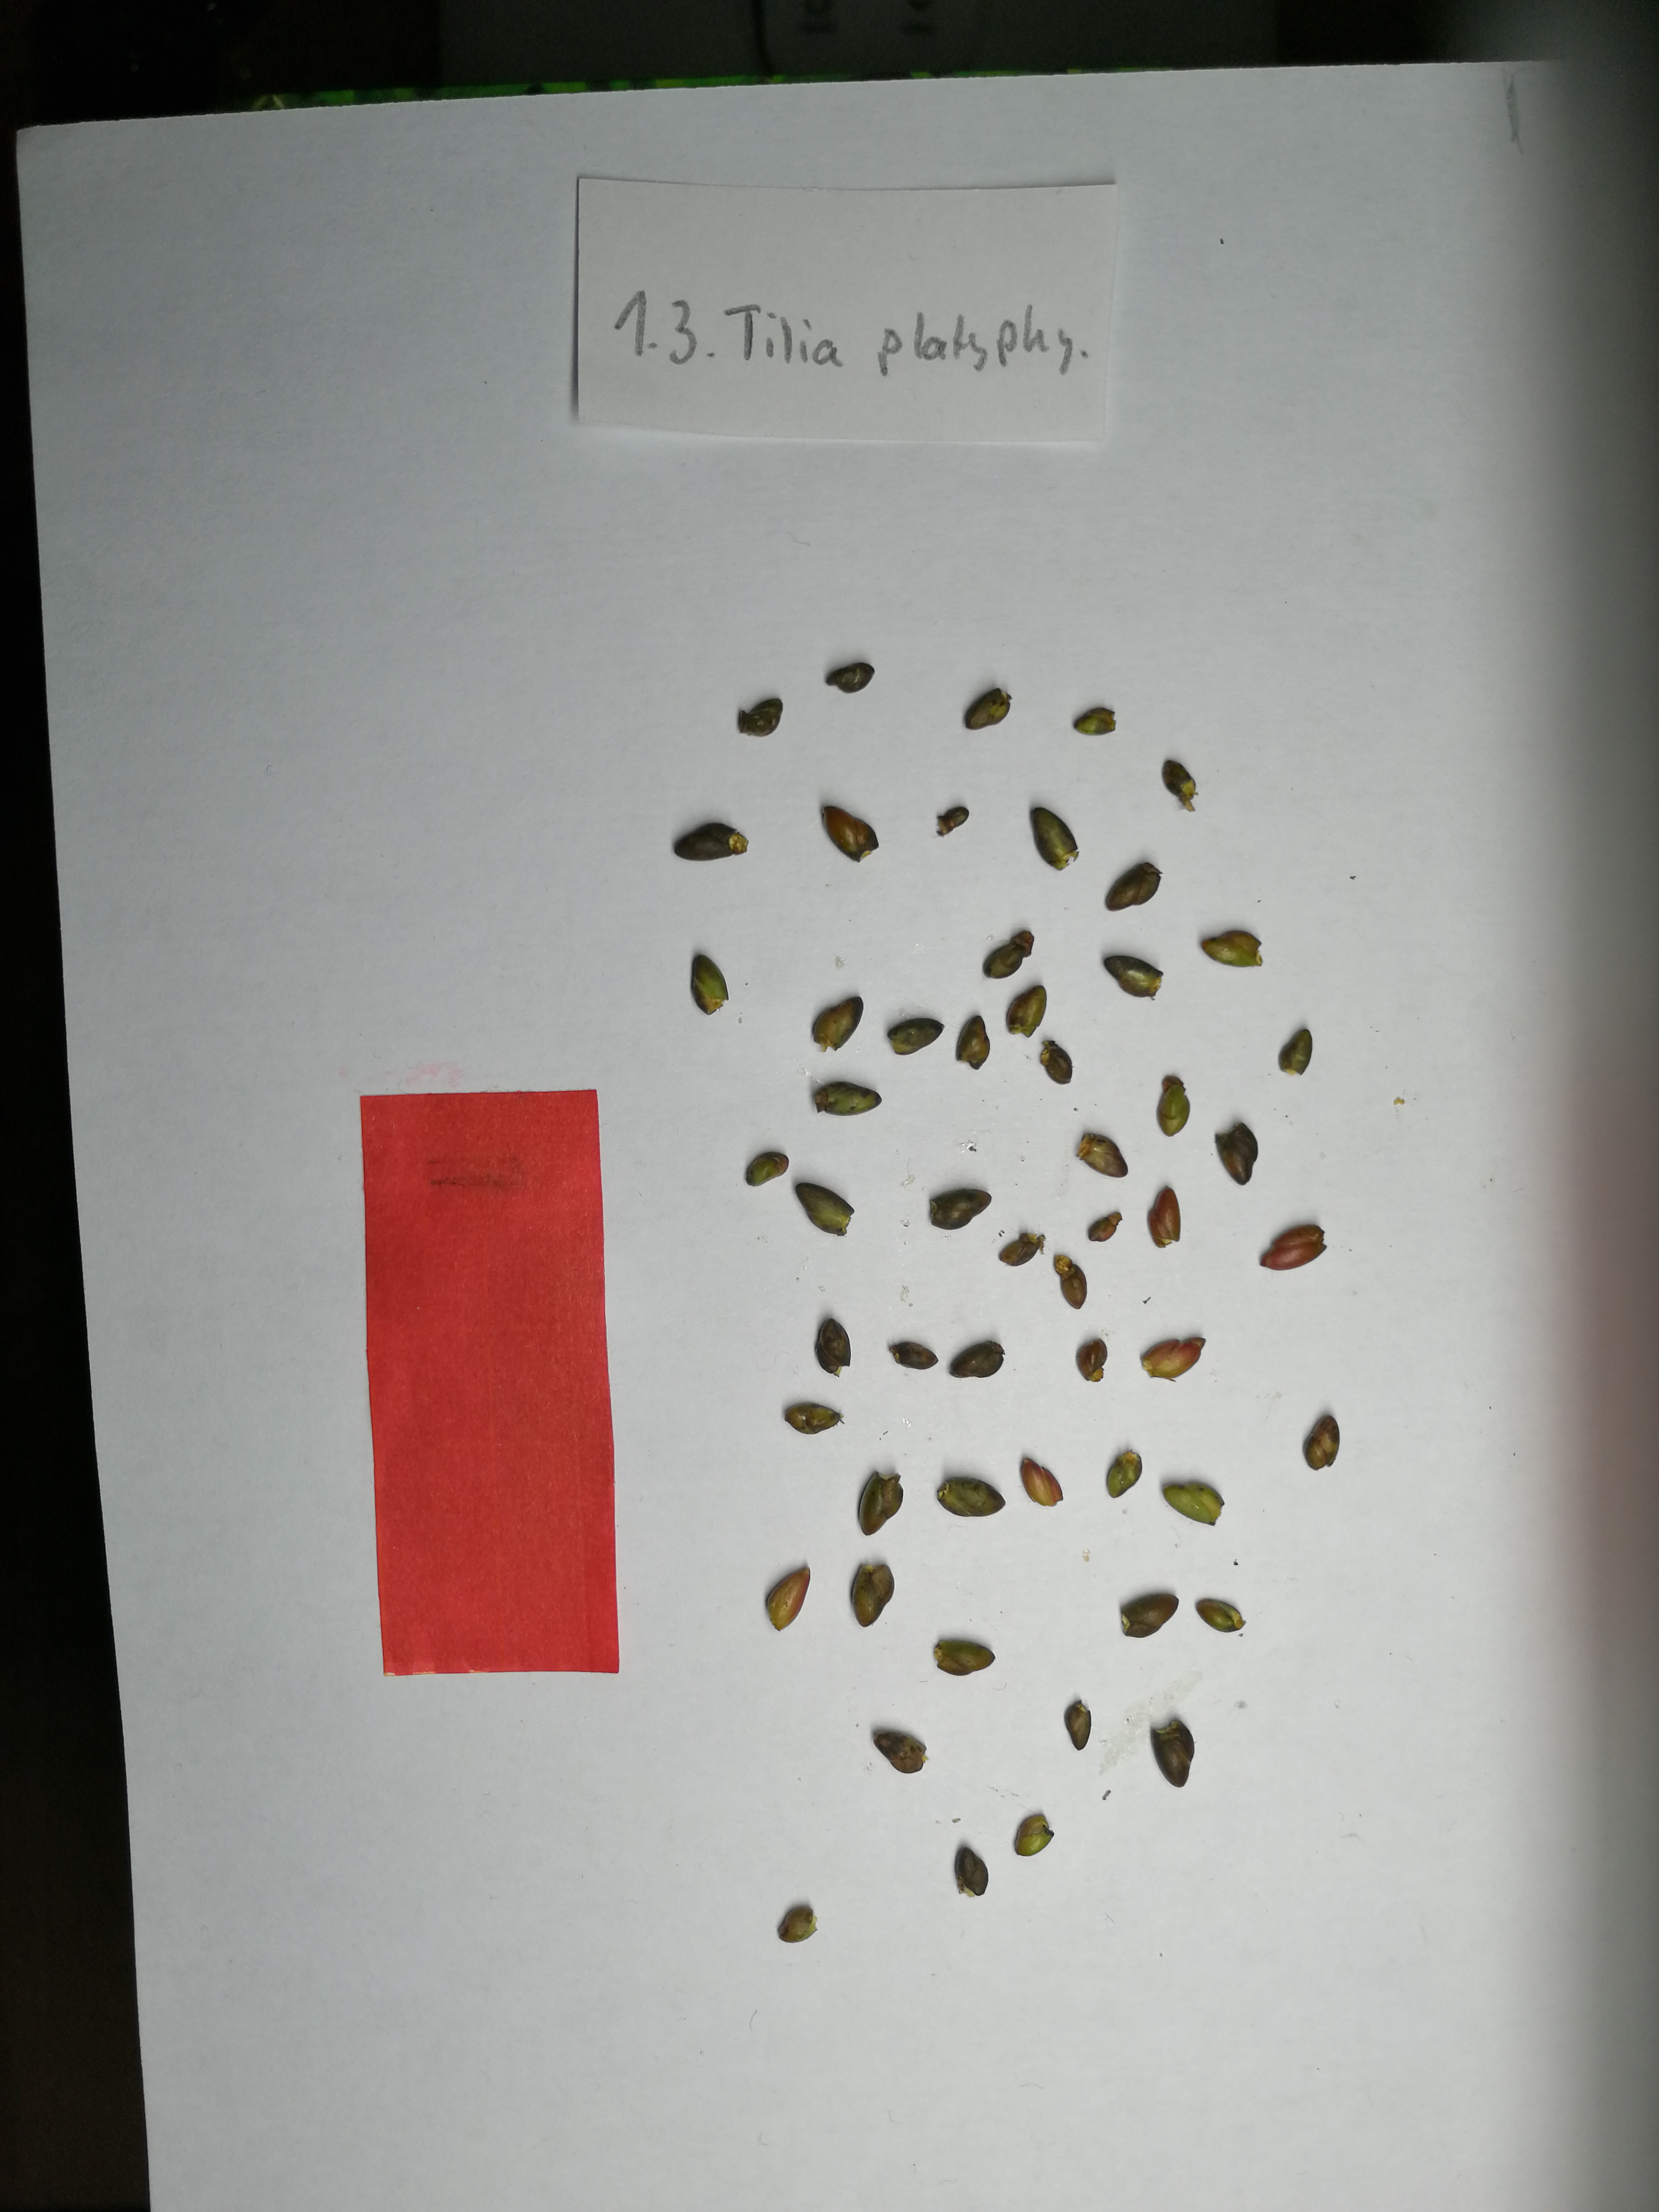 1.3. Tilia platyphy.